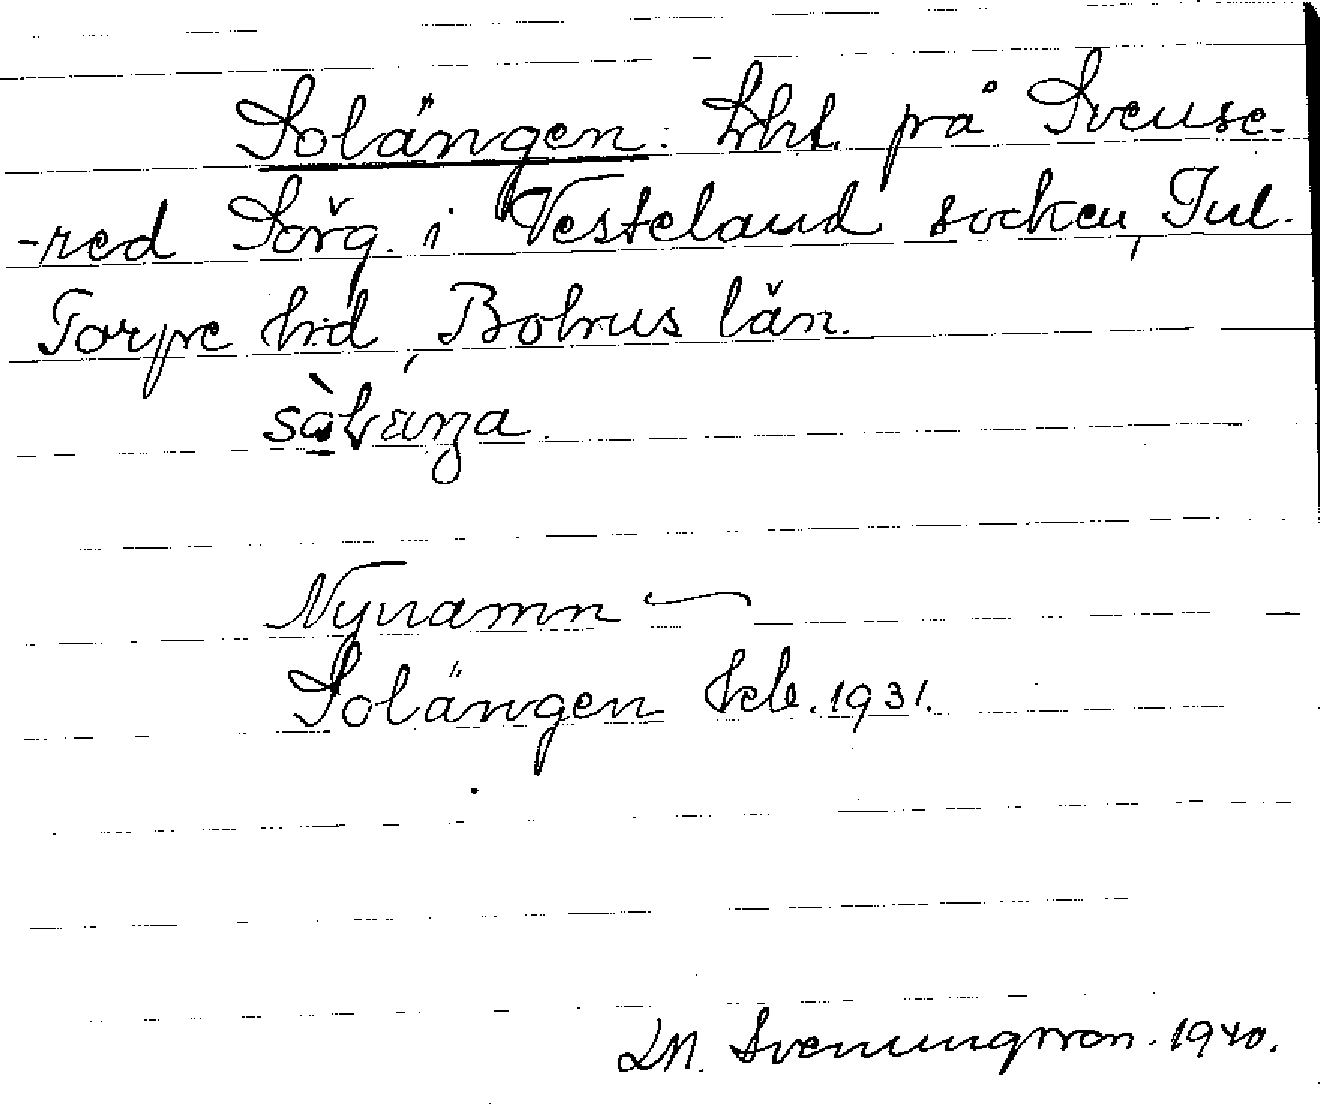 Solängen: Lht. på Svense-
-red Sörg. i Vesteland socken, Inl.
Torpe hd, Bohus län.
Nynamn
Solängen Jrb. 1931.
LM. Svenungsson. 1940.